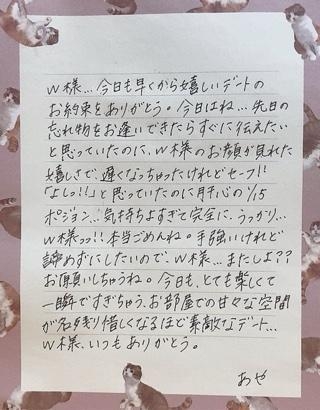 W様…今日も早くから嬉しいデートの
お約束をありがとう。今日はね…先日の
忘れ物をお逢いできたらすぐに伝えたい
と思っていたのに、W様のお顔が見れた
嬉しさで、遅くなっちゃったけれどセーフ!!
「よしっ!!」と思っていたのに肝心の 1/15
ポジョン…気持ちよすぎて完全に、うっかり…
W様っっ!!本当ごめんね。手強いけれど
諦めずにしたいので、W様…またしよ??
お願いしちゃうね。今日も、とても楽しくて
一瞬ですぎちゃう、お部屋での甘々な空間
が名残り惜しくなるほど素敵なデート…
W様、いつもありがとう。
あや